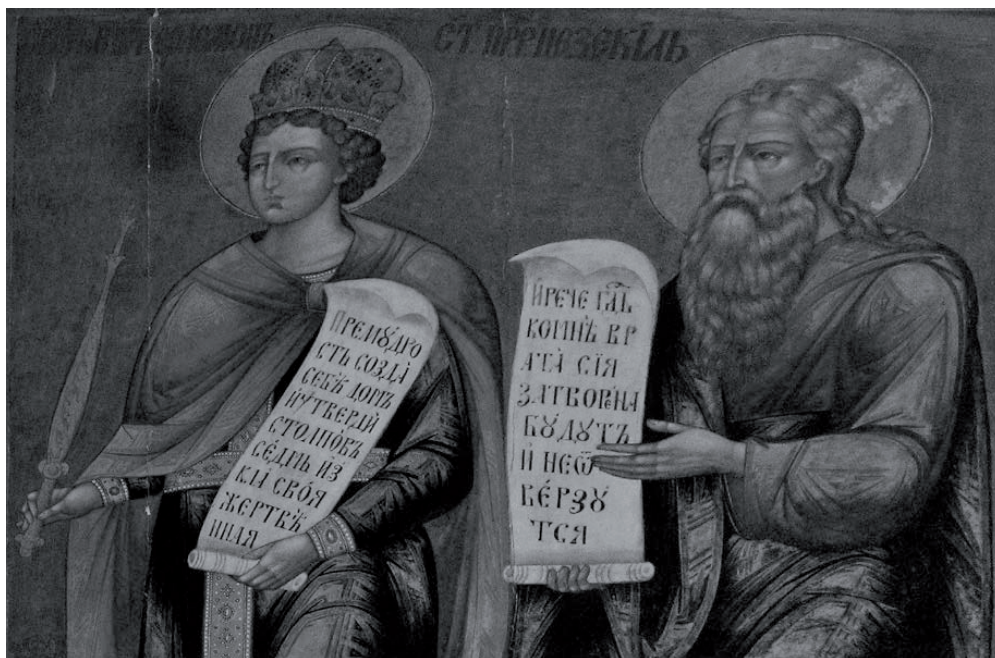 СТ ПР ІЕЗЕКІЛЬ
ПРЕМꙊДРО
СТЬ СОЗДА
СЕБѢ ДОМЪ
И ꙊТВЕРДИ
СТОЛПОВЪ
СЕДМЬ ИЗ
КЛА СВОЯ
ЖЕРТВЕ
ННАЯ
И РЕЧЕ ГДЬ
КОМНѢ ВР
АТА СІЯ
ЗАТВОРЕНА
БꙊДУТЪ
И НЕѾ
ВЕРЗꙊ
ТСЯ